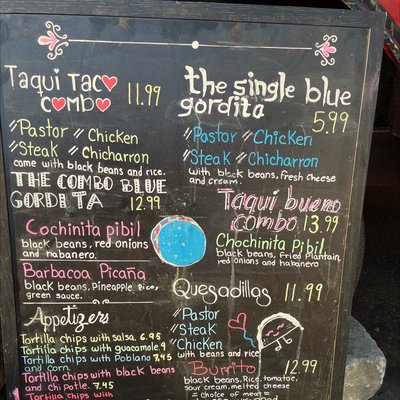 Taqui Taco
Combo 11.99
"Pastor "Chicken
"Steak "Chicharron
come with black beans and rice.
THE COMBO BLUE
GORDITA 12.99
Cochinita pibil
black beans, red onions
and habanero.
Barbacoa Picaña
black beans, Pineapple Pico,
green sauce.
Appetizers
Tortilla chips with salsa 6.95
Tortilla chips with guacamole 9
Tortilla chips with Poblano 7.45
and corn.
Tortilla chips with black beans
and chipotle. 7.45
Tortilla chips with
the single blue
gordita 5.99
"Pastor "Chicken
"Steak "Chicharron
with black beans, fresh cheese
and cream.
Taqui bueno
combo 13.99
Chochinita Pibil
black beans, Fried Plantain,
red onions and habanero
Quesadillas 11.99
"Pastor
"Steak
"Chicken
with beans and rice
Burrito 12.99
black beans, Rice, tomatoe,
sour cream, melted cheese
= choice of meat =